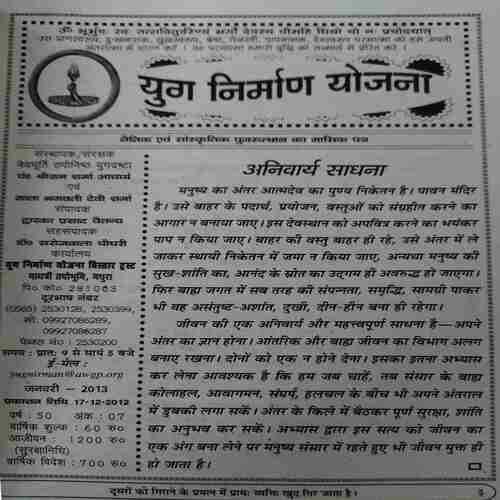 ॐ भूर्भुवः स्वः तत्सवितुर्वरेण्यं भर्गो देवस्य धीमहि धियो यो नः प्रचोदयात्
उस प्राणस्वरूप, दुःखनाशक, सुखस्वरूप, श्रेष्ठ, तेजस्वी, पापनाशक, देवस्वरूप परमात्मा को हम अपनी
अंतरात्मा में धारण करें । वह परमात्मा हमारी बुद्धि को सन्मार्ग में प्रेरित करे ।
युग निर्माण योजना
नैतिक एवं सांस्कृतिक पुनरुत्थान का मासिक पत्र
संस्थापक/संरक्षक
वेदमूर्ति तपोनिष्ठ युगद्रष्टा
पं० श्रीराम शर्मा आचार्य
एवं
माता भगवती देवी शर्मा
संपादक
द्वारका प्रसाद चैतन्य
सहसंपादक
डॉ० सरोजबाला चौधरी
कार्यालय
युग निर्माण योजना विस्तार ट्रस्ट
गायत्री तपोभूमि, मथुरा
पि० को० 281003
दूरभाष नंबर
(0565) 2530128, 2530399,
मो० 09927086289,
09927086287
फैक्स नं० 2530200
समय : प्रातः 9 से सायं 5 बजे
ई-मेल-
yugnirman@awgp.org
जनवरी – 2013
प्रकाशन तिथि 17-12-2012
वर्ष : 50 अंक : 07
वार्षिक शुल्क : 60 रु०
आजीवन : 1200 रु०
(सुरक्षानिधि)
वार्षिक विदेश : 700 रु०
अनिवार्य साधना
मनुष्य का अंतर आत्मदेव का पुण्य निकेतन है। पावन मंदिर
है। उसे बाहर के पदार्थ, प्रयोजन, वस्तुओं को संग्रहीत करने का
आगार न बनाया जाए। इस देवस्थान को अपवित्र करने का भयंकर
पाप न किया जाए। बाहर की वस्तु बाहर ही रहे, उसे अंतर में ले
जाकर स्थायी निकेतन में जमा न किया जाए, अन्यथा मनुष्य की
सुख-शांति का, आनंद के स्रोत का उद्गम ही अवरुद्ध हो जाएगा।
फिर बाह्य जगत में सब तरह की संपन्नता, समृद्धि, सामग्री पाकर
भी वह असंतुष्ट-अशांत, दुखी, दीन-हीन बना ही रहेगा।
जीवन की एक अनिवार्य और महत्त्वपूर्ण साधना है—अपने
अंतर का ज्ञान होना। आंतरिक और बाह्य जीवन का विभाग अलग
बनाए रखना। दोनों को एक न होने देना। इसका इतना अभ्यास
कर लेना आवश्यक है कि हम जब चाहें, तब संसार के बाह्य
कोलाहल, आवागमन, संघर्ष, हलचल के बीच भी अपने अंतराल
में डुबकी लगा सकें। अंतर के किले में बैठकर पूर्ण सुरक्षा, शांति
का अनुभव कर सकें। अभ्यास द्वारा इस सत्य को जीवन का
एक अंग बना लेने पर मनुष्य संसार में रहते हुए भी जीवन मुक्त ही
हो जाता है।
दूसरों को गिराने के प्रयत्न में प्रायः व्यक्ति खुद गिर जाता है।